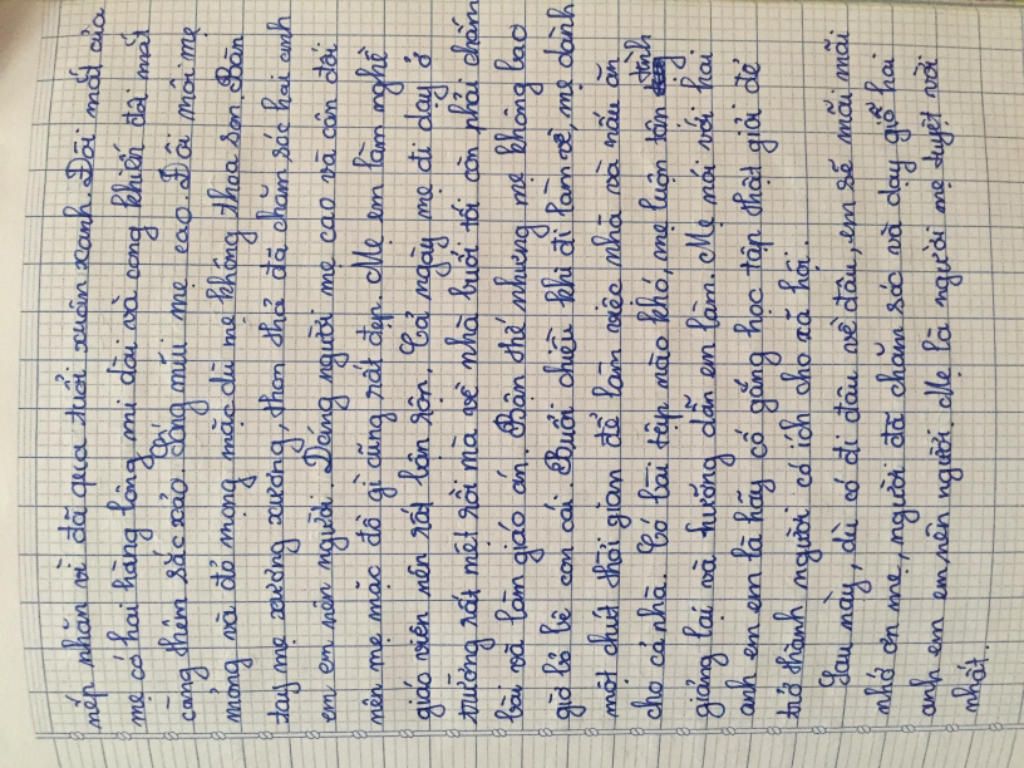 nếp nhăn vì đã qua tuổi xuân xanh. Đôi mắt của
mẹ có hai hàng lông mi dài và cong khiến đôi mắt
càng thêm sắc xảo. Sống mũi mẹ cao. Đôi môi mẹ
mỏng và đỏ mọng mặc dù mẹ không thoa son. Bàn
tay mẹ xương xương, thon thả đã chăm sóc hai anh
em em nên người. Dáng người mẹ cao và cân đối
nên mẹ mặc đồ gì cũng rất đẹp. Mẹ em làm nghề
giáo viên nên rất bận rộn, Cả ngày mẹ đi dạy ở
trường rất mệt rồi mà về nhà buổi tối còn phải chấm
bài và làm giáo án. Bận thế nhưng mẹ không bao
giờ bỏ bê con cái. Buổi chiều khi đi làm về, mẹ dành
một chút thời gian để làm việc nhà và nấu ăn
cho cả nhà. Có bài tập nào khó, mẹ luôn tận tình
giảng lại và hướng dẫn em làm. Mẹ nói với hai
anh em em là hãy cố gắng học tập thật giỏi để
trở thành người có ích cho xã hội.
Sau này, dù có đi đâu về đâu, em sẽ mãi mãi
nhớ ơn mẹ, người đã chăm sóc và dạy giỗ hai
anh em em nên người. Mẹ là người mẹ tuyệt vời
nhất.